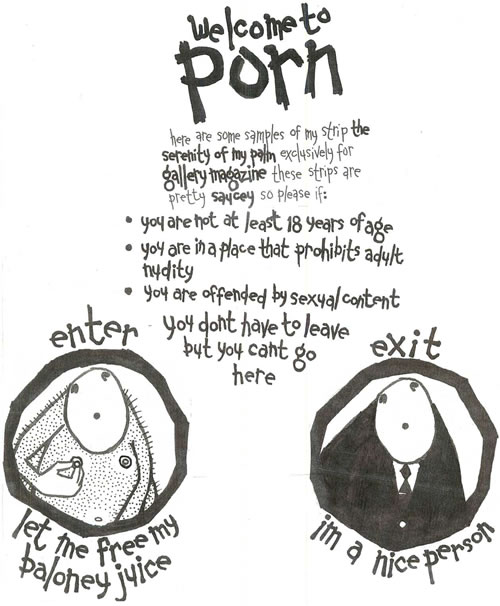 welcome to
porn
here are some samples of my strip the
serenity of my palm exclusively for
gallery magazine these strips are
pretty saucey so please if:
• you are not at least 18 years of age
• you are in a place that prohibits adult
nudity
• you are offended by sexual content
you dont have to leave
but you cant go
here
enter
let me free my
baloney juice
exit
im a nice person